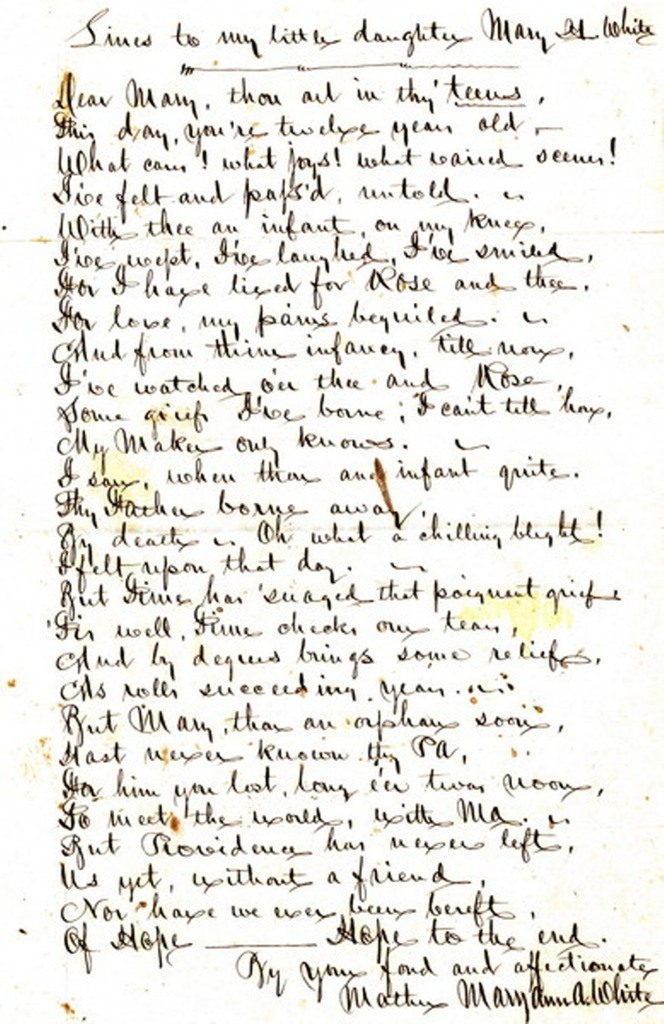 Lines to my little daughter Mary H. White
Dear Mary, thou art in thy teens,
This day, you're twelve years old, –
What cares! what joys! what varied scenes!
I've felt and pass'd, untold. ~
With thee an infant, on my knee,
I've wept, I've laughed, I've smiled,
For I have lived for Rose and thee,
For love, my pains beguiled. ~
And from thine infancy, till now,
I've watched o'er thee and Rose,
Some griefs I've borne; I can't tell how,
My Maker only knows. ~
I saw, when thou an infant quite.
Thy Father borne away,
By death ~ Oh what a chilling blight!
I felt upon that day. ~
But Time has 'suaged that poignant grief
'Tis well, Time checks our tears,
And by degrees brings some relief,
As rolls succeeding years. ~
But Mary, thou an orphan soon,
Hast never known thy PA,
For him you lost, long e'er twas noon,
To meet the world, with Ma. ~
But Providence has never left,
Us yet, without a friend,
Nor have we ever been bereft,
Of Hope ——— Hope to the end.
By your fond and affectionate
Mother Mary Ann A. White